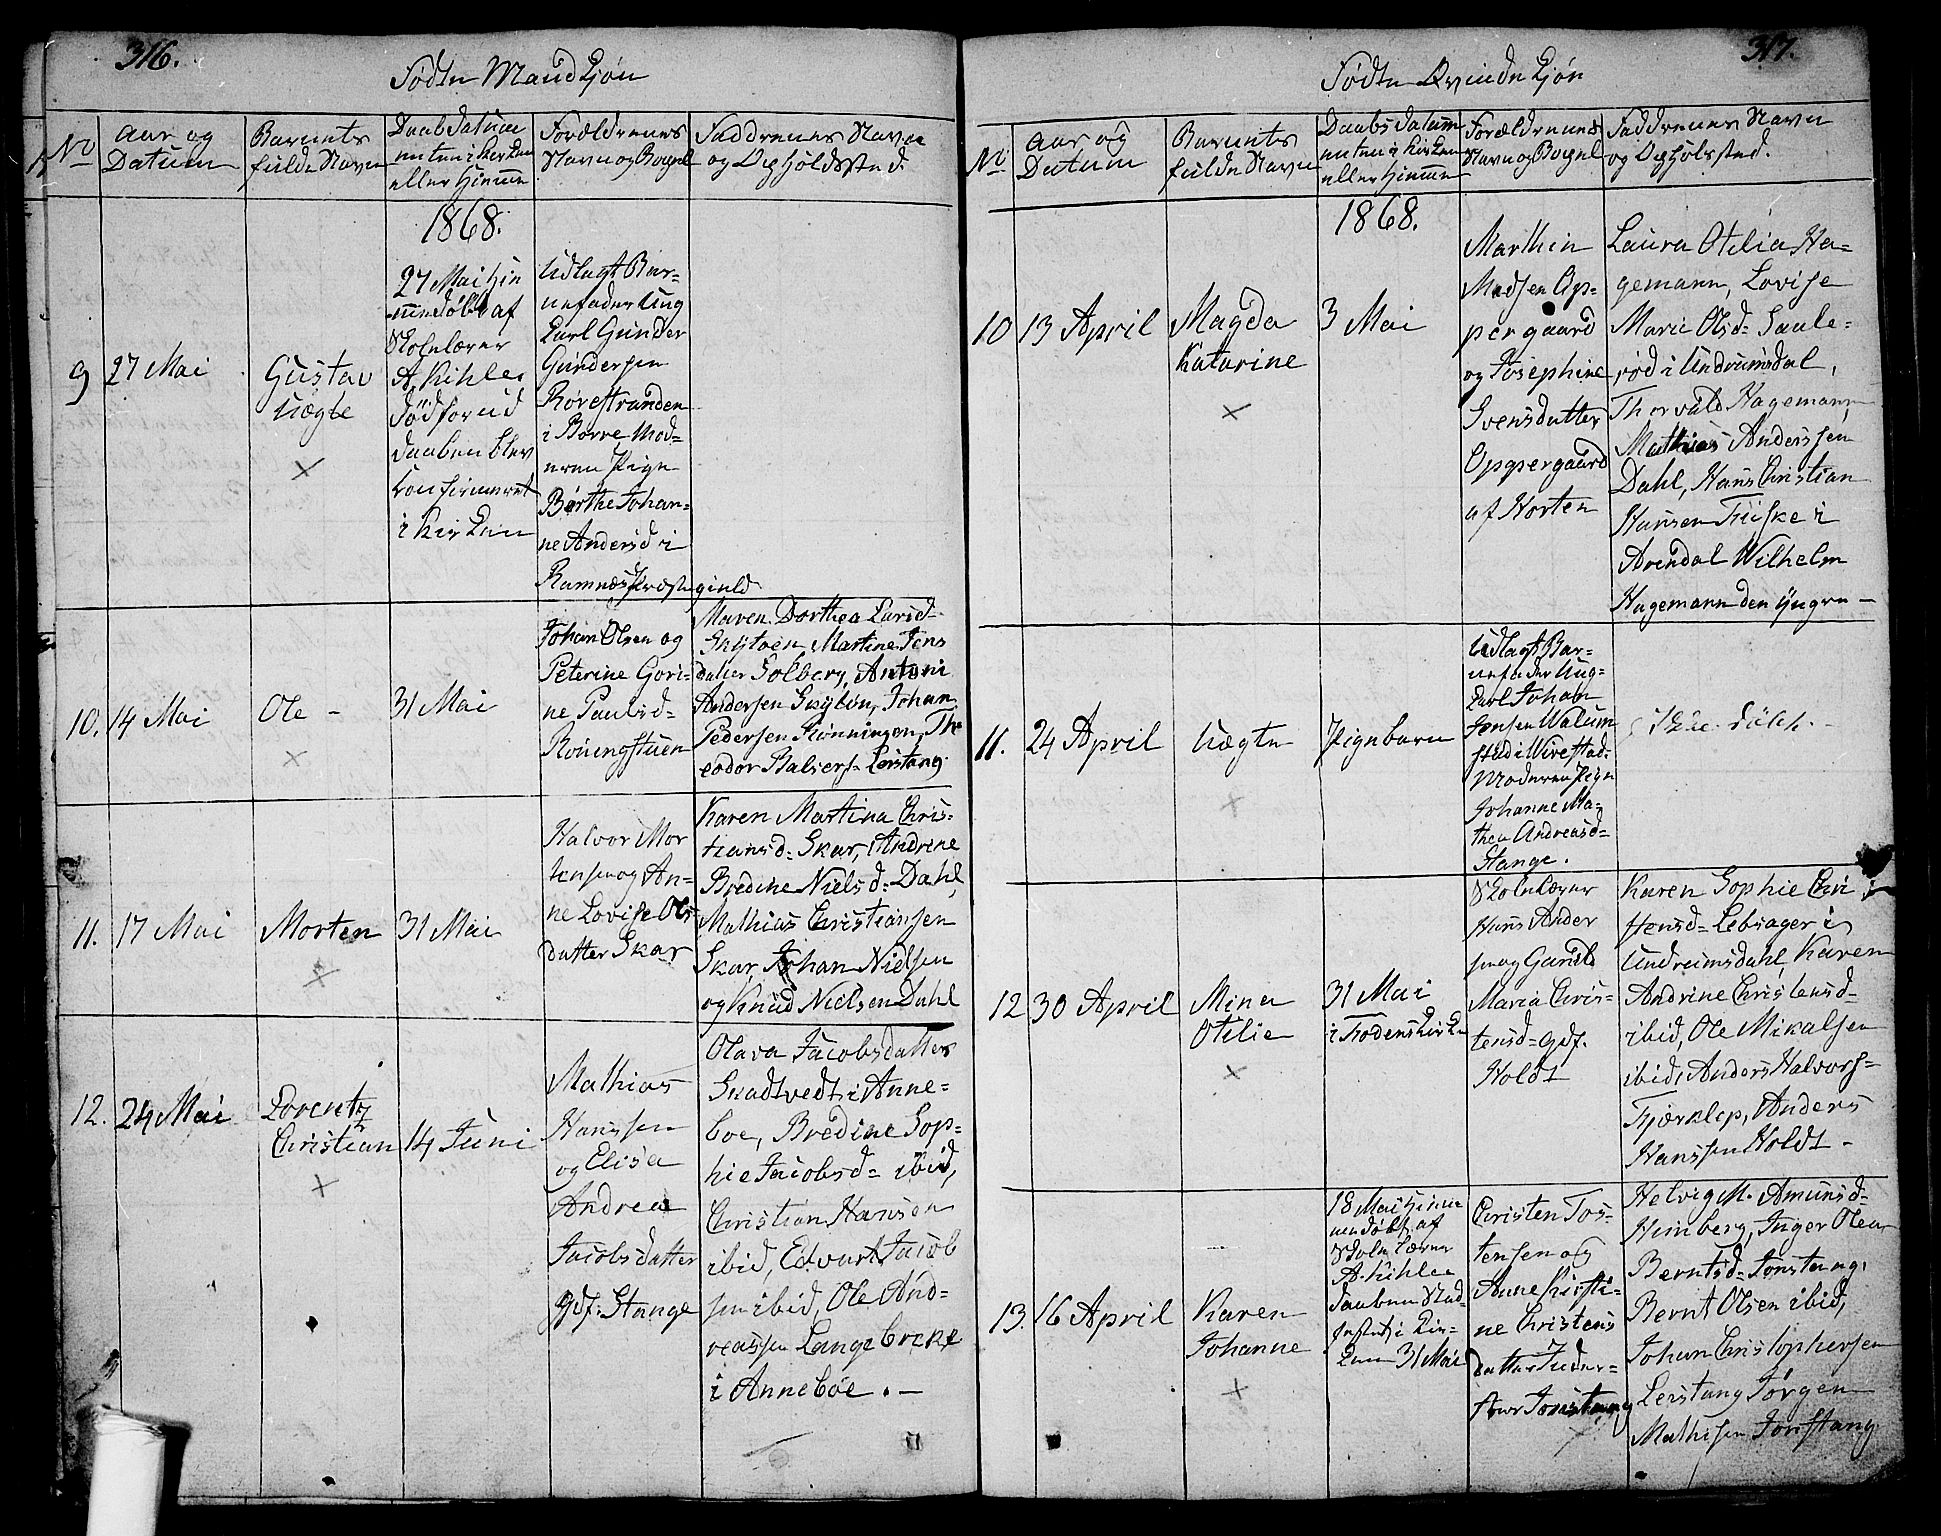 316.
Fødte Mandkjøn
No
Aar og
Datum
Barnets
fulde Navn
Daabsdatum
enten i Kirken
eller Hjemme
Forældrenes
Navn og Bopæl
Faddrenes Navn
og Opholdssted.
1868.
9
27 Mai
Gustav
uægte
27 Mai Hje
mmedøbt af
Skolelærer
A. Kihle.
død forud
daaben blev
confirmeret
i Kirken
Udlagt Bar-
nefader Ung
Carl Gunder
Gundersen
Rørestranden
i Borre Mod-
eren Pige
Berthe Johan-
ne Andersd i
Ramnæs Præstegield
10.
14 Mai
Ole -
31 Mai
Johan Olsen og
Peterine Gori-
ne Paulsd=
Roningstuen
Maren Dorthea Larsd=
Skytøen Martine Jens
datter Solberg, Antoni
Andersen Skytøn, Johan
Pedersen Rønningen, The
eodor Balsers= Leistang.
11.
17 Mai
Morten
31 Mai
Halvor Mor
tensen og An-
ne Lovise Ols
datter Skar
Karen Martina Chris-
tiansd= Skar, Andrine
Bredine Nielsd= Dahl,
Mathias Christiansen
Skar, Johan Nielsen
og Knud Nielsen Dahl
12.
24 Mai
Lorentz
Christian
14 Juni
Mathias
Hanssen
og Elisa
Andrea
Jacobsdatter
gdf. Stange
Olava Jacobsdatter
Skadtvedt i Anne-
boe, Bredine Sop-
hie Jacobsd= ibid,
Christian Hansen
ibid, Edvart Jacob
sen ibid, Ole And-
reassen Langebrekke
i Anneboe. -
317.
Fødte Qvindekjøn
No
Aar og
Datum
Barnets
fulde Navn
Daabsdatum
enten i Kirken
eller Hjemme
Forældrenes
Navn og Bopæl
Faddrenes Navn
og Opholssted.
1868.
10
13 April
Magda
Katarine
3 Mai
Marthin
Madsen Op-
pergaard
og Josephine
Svensdatter
Oppergaard
af Horten
Laura Otilia Ha-
gemann, Lovise
Marie Olsd= Saule-
rød i Undrumsdal,
Thorvald Hagemann,
Mathias Anderssen
Dahl, Hans Christian
Hansen Friske i
Arendal Wilhelm
Hagemann den yngre -
11.
24 April
Uægte
Pigebarn
Udlagt Bar-
nefader Ung-
Carl Johan
Jensen Walum
fød i Wivestad-
Moderen Pige
Johanne Ma-
thea Andreasd=
Stange.
ikke døbt. -
12
30 April
Mina
Otilie
31 Mai
i Frodens Kirke
Skolelærer
Hans Ander
sen og Gunild
Maria Chris-
tensd= gdf.
Holdt
Karen Sophie Chri
stensd= Lebsager i
Undrumsdahl, Karen
Andrine Christensd=
ibid, Ole Mikalsen
ibid, Anders Halvors=
Fjærklep, Anders
Hanssen Holdt -
13.
16 April
Karen
Johanne
18 Mai Hjemme
døbt af
Skolelærer
A. Kihle
daaben stad-
festet i Kir-
ken 31 Mai
Christen Tos-
tensen og
Anne Kirsti-
ne Christens
datter
Jonstang
Helvig M. Amunsd=
Himberg, Inger Olea
Berntsd= Jonstang,
Bernt Olsen ibid,
Johan Christophersen
Leistang Jørgen
Mathisen Jonstang